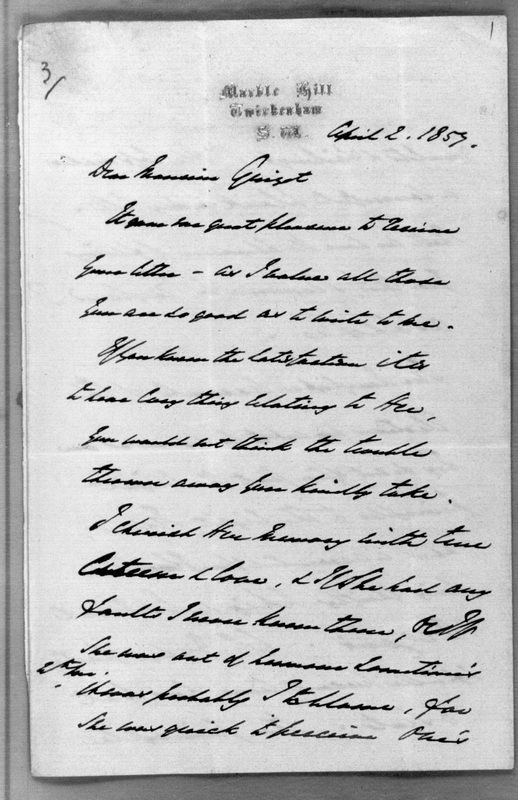 3/
1
Marble Hill
Twickenham
S.W.
April 2. 1857.
Dear Monsieur Guizot
It gave me great pleasure to receive
your letter – as I value all those
you are so good as to write to me.
If you knew the satisfaction it is
to hear every thing relating to Her,
you would not think the trouble
thrown away you kindly take.
I cherish Her memory with true
esteem & love, & if She had any
faults I never knew them, or if
She was out of humour sometimes
it was probably I to blame, for
She was quick to perceive One's